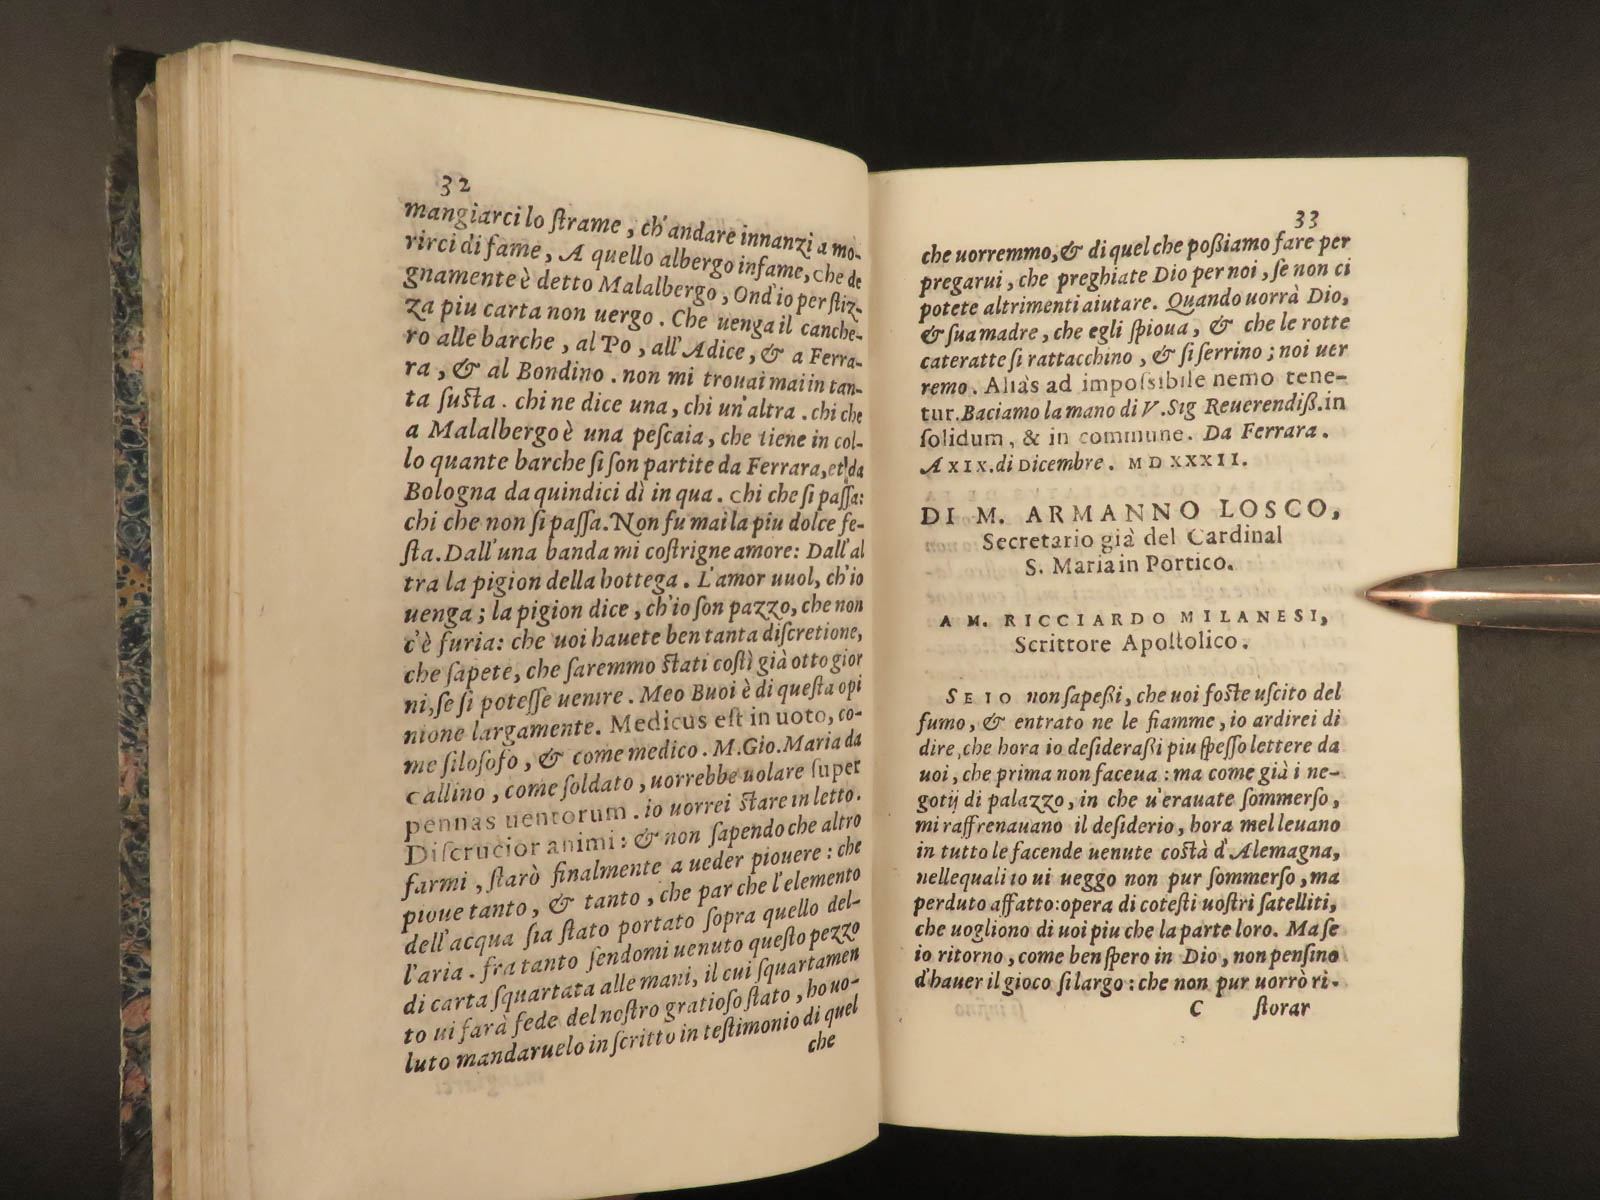 32
mangiarci lo ſtrame, ch'andare innanzi a mo-
rirci di fame, A quello albergo infame, che de
gnamente è detto Malalbergo, Ond'io per ſtiz-
za piu carta non uergo. Che uenga il canche-
ro alle barche, al Po, all'Adice, & a Ferra-
ra, & al Bondino. non mi trouai mai in tan-
ta ſuſta. chi ne dice una, chi un'altra. chi che
a Malalbergo è una peſcaia, che tiene in col-
lo quante barche ſi ſon partite da Ferrara, et da
Bologna da quindici dì in qua. chi che ſi paſſa:
chi che non ſi paſſa. Non fu mai la piu dolce fe-
ſta. Dall'una banda mi coſtrigne amore: Dall'al
tra la pigion della bottega. L'amor uuol, ch'io
uenga; la pigion dice, ch'io ſon pazzo, che non
c'è furia: che uoi hauete ben tanta diſcretione,
che ſapete, che ſaremmo ſtati coſtì già otto gior
ni, ſe ſi poteſſe uenire. Meo Buoi è di queſta opi
nione largamente. Medicus eſt in uoto, co-
me filoſofo, & come medico. M. Gio. Maria da
Callino, come ſoldato, uorrebbe uolare ſuper
pennas uentorum. io uorrei ſtare in letto.
Diſcrucior animi: & non ſapendo che altro
farmi, ſtarò finalmente a ueder piouere: che
pioue tanto, & tanto, che par che l'elemento
dell'acqua ſia ſtato portato ſopra quello del-
l'aria. fra tanto ſendomi uenuto queſto pezzo
di carta ſquartata alle mani, il cui ſquartamen
to ui farà fede del noſtro gratioſo ſtato, ho uo-
luto mandaruelo in ſcritto in teſtimonio di quel
che
33
che uorremmo, & di quel che poßiamo fare per
pregarui, che preghiate Dio per noi, ſe non ci
potete altrimenti aiutare. Quando uorrà Dio,
& ſua madre, che egli ſpioua, & che le rotte
cateratte ſi rattacchino, & ſi ſerrino; noi uer
remo. Aliàs ad impoſsibile nemo tene-
tur. Baciamo la mano di V. Sig Reuerendiß. in
ſolidum, & in commune. Da Ferrara.
A XIX. di Dicembre. MDXXXII.
DI M. ARMANNO LOSCO,
Secretario già del Cardinal
S. Maria in Portico.
A M. RICCIARDO MILANESI,
Scrittore Apoſtolico.
SE IO non ſapeßi, che uoi foſte uſcito del
fumo, & entrato ne le fiamme, io ardirei di
dire, che hora io deſideraßi piu ſpeſſo lettere da
uoi, che prima non faceua: ma come già i ne-
gotij di palazzo, in che u'erauate ſommerſo,
mi raffrenauano il deſiderio, hora mel leuano
in tutto le facende uenute coſtà d'Alemagna,
nelle quali io ui ueggo non pur ſommerſo, ma
perduto affatto: opera di coteſti uoſtri ſatelliti,
che uogliono di uoi piu che la parte loro. Ma ſe
io ritorno, come ben ſpero in Dio, non penſino
d'hauer il gioco ſi largo: che non pur uorrò ri-
C ſtorar